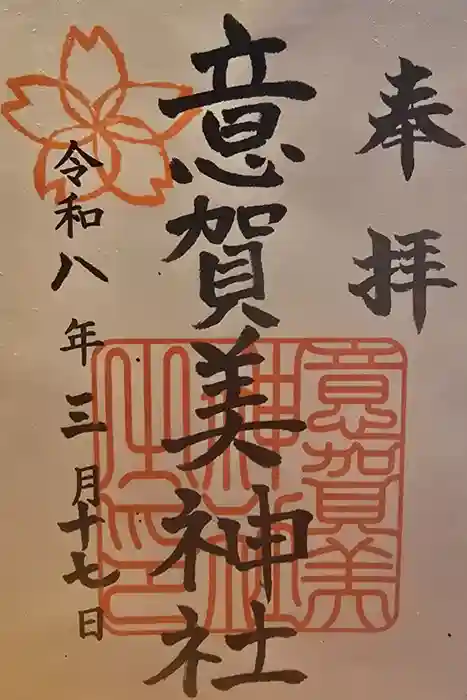 奉拝
意賀美神社
令和八年三月十七日
意賀美
神社
之印